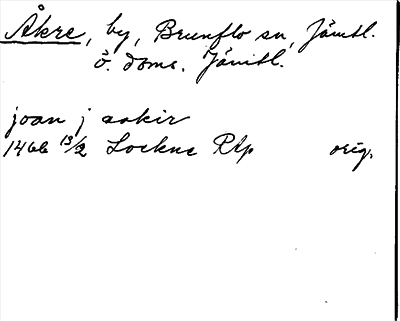 Åkre, by, Brunflo sn, Jämtl.
ö. doms. Jämtl.
joan j aakir
1466 13/2 Lockne Rap orig.